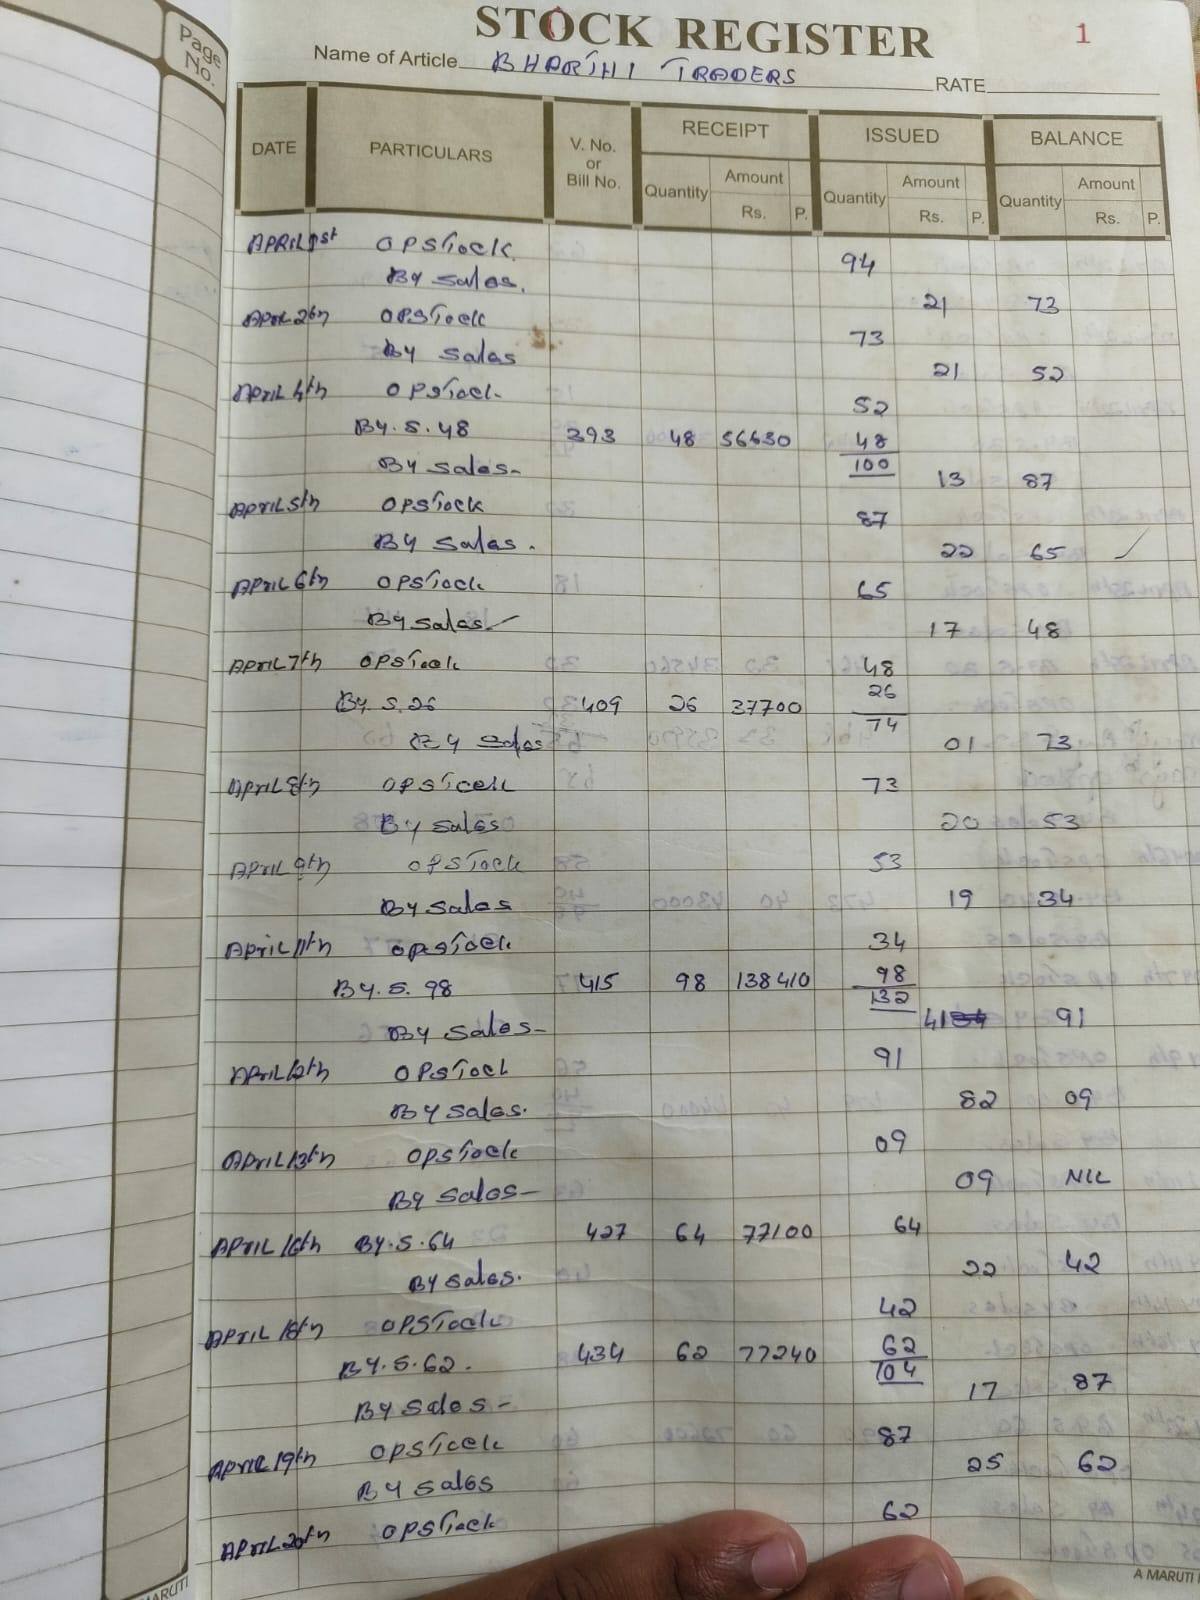 Page No.
STOCK REGISTER 1
Name of Article BHARTHI TRADERS RATE
DATE PARTICULARS V. No. or Bill No. RECEIPT ISSUED BALANCE
Quantity Amount Rs. P. Quantity Amount Rs. P. Quantity Amount Rs. P.
APRIL 1st OPSTOCK. 94
By sales. 21 73
APRIL 2th OPSTOCK 73
By sales 21 52
APRIL 4th OPSTOCK- 52
BY.S.48 393 48 56630 48
By sales- 100 13 87
APRIL 5th OPSTOCK 87
By sales. 22 65
APRIL 6th OPSTOCK 65
By sales 17 48
APRIL 7th OPSTOCK 48
By S.26 409 26 37700 26
74
By sales 01 73
APRIL 8th OPSTOCK 73
By sales 20 53
APRIL 9th OPSTOCK 53
By sales 19 34
APRIL 11th OPSTOCK 34
BY.S. 98 415 98 138410 98
132
By sales- 41 91
APRIL 12th OPSTOCK 91
By sales. 82 09
APRIL 13th OPSTOCK 09
By sales- 09 NIL
APRIL 16th BY.S.64 427 64 77100 64
By sales. 22 42
APRIL 18th OPSTOCK 42
BY.S.62. 434 62 77240 62
104
By sales- 17 87
APRIL 19th OPSTOCK 87
By sales 25 62
APRIL 20th OPSTOCK 62
MARUTI
A MARUTI